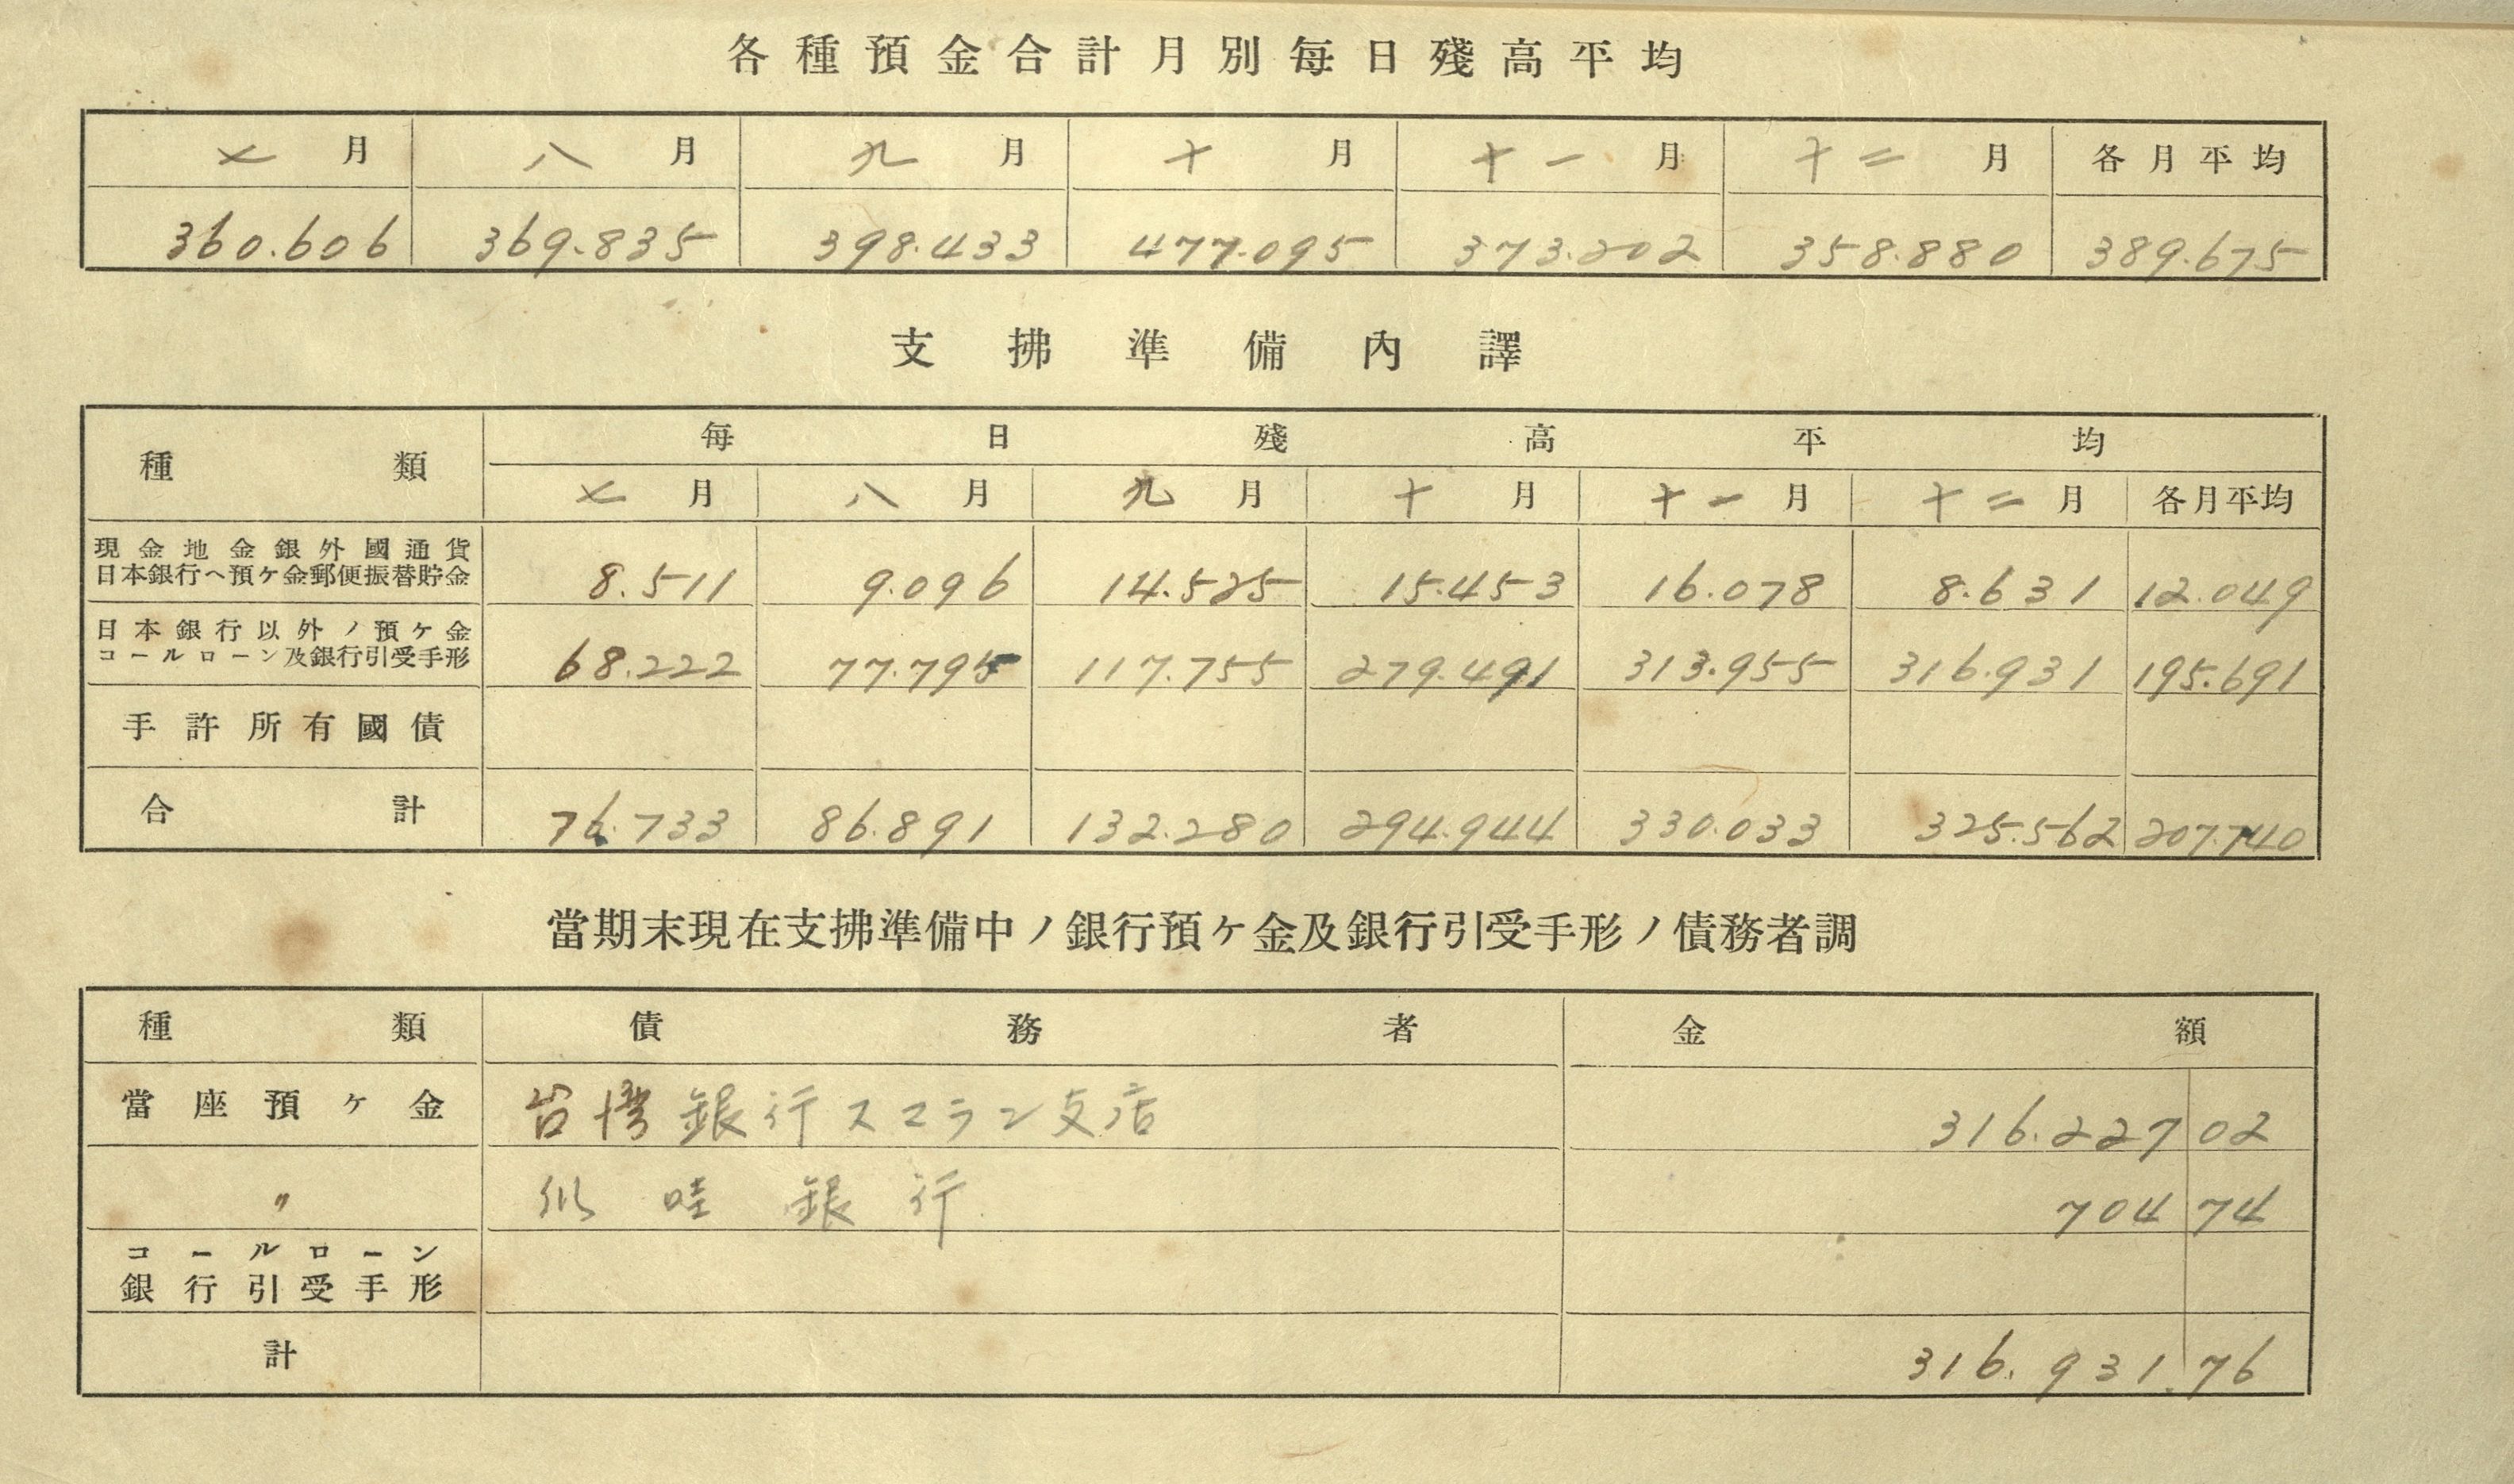 各種預金合計月別每日殘高平均
七月 八月 九月 十月 十一月 十二月 各月平均
360.606 369.835 398.433 477.095 373.202 358.880 389.675
支拂準備內譯
種類 每日殘高平均
七月 八月 九月 十月 十一月 十二月 各月平均
現金地金銀外國通貨
日本銀行へ預ヶ金郵便振替貯金 8.511 9.096 14.525 15.453 16.078 8.631 12.049
日本銀行以外ノ預ヶ金
コールローン及銀行引受手形 68.222 77.795 117.755 279.491 313.955 316.931 195.691
手許所有國債
合計 76.733 86.891 132.280 294.944 330.033 325.562 207.740
當期末現在支拂準備中ノ銀行預ヶ金及銀行引受手形ノ債務者調
種類 債務者 金額
當座預ヶ金 台湾銀行スマラン支店 316.227 02
〃 爪哇銀行 704 74
コールローン
銀行引受手形
計 316.931.76